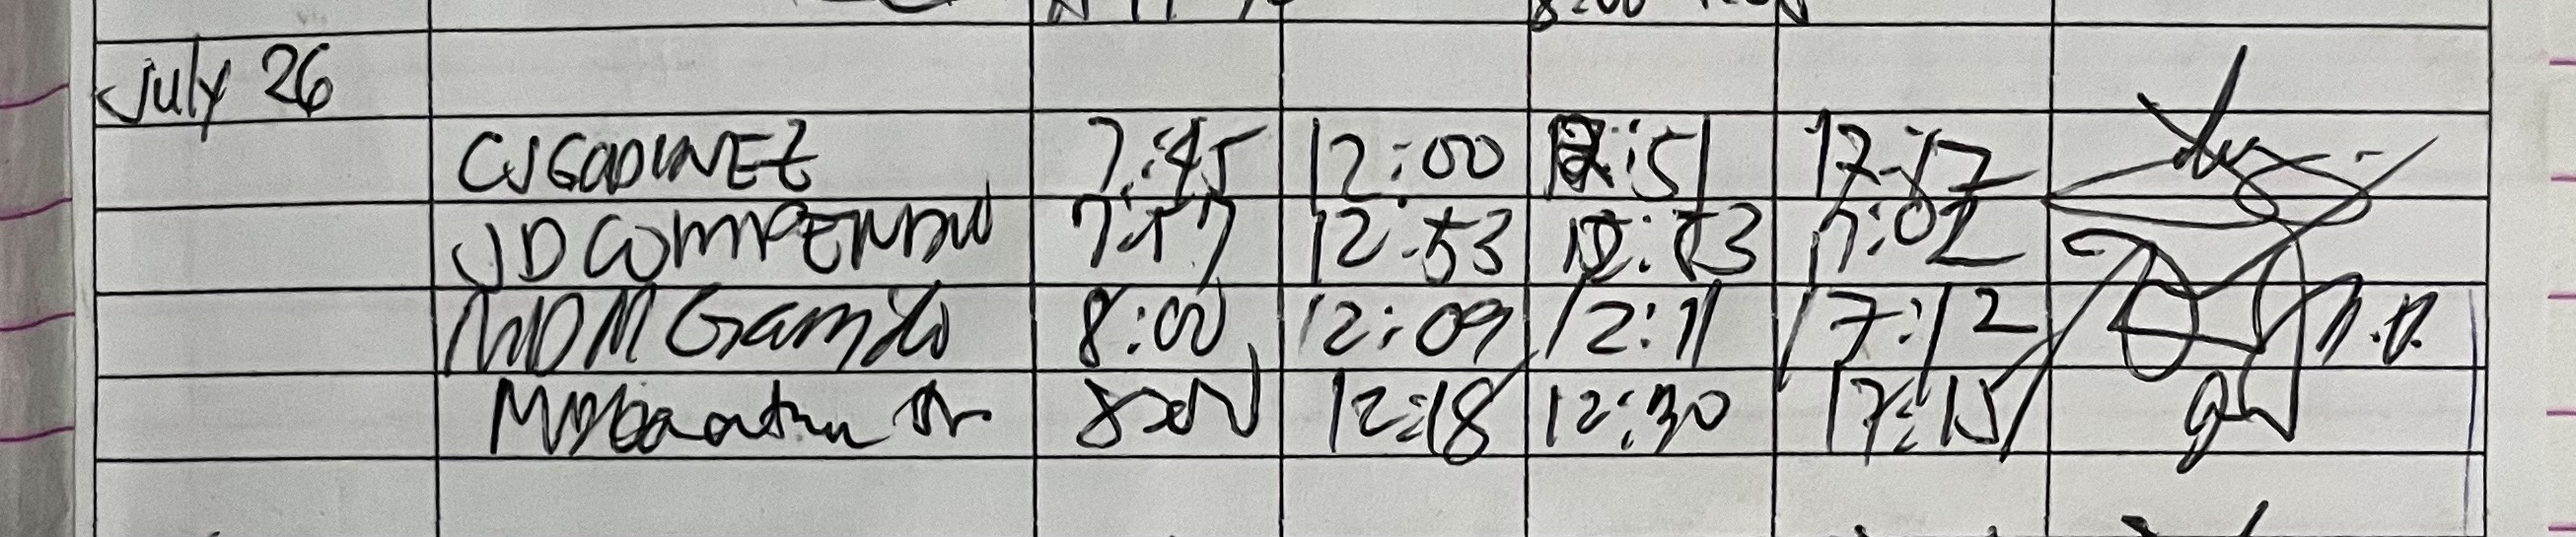 July 26
CJ GODINEZ 7:45 12:00 12:51 17:17
JD COMPENDIO 7:57 12:53 12:53 17:02
MDM Gamilo 8:00 12:09 12:11 17:12
Jr. 8:00 12:18 12:30 17:15